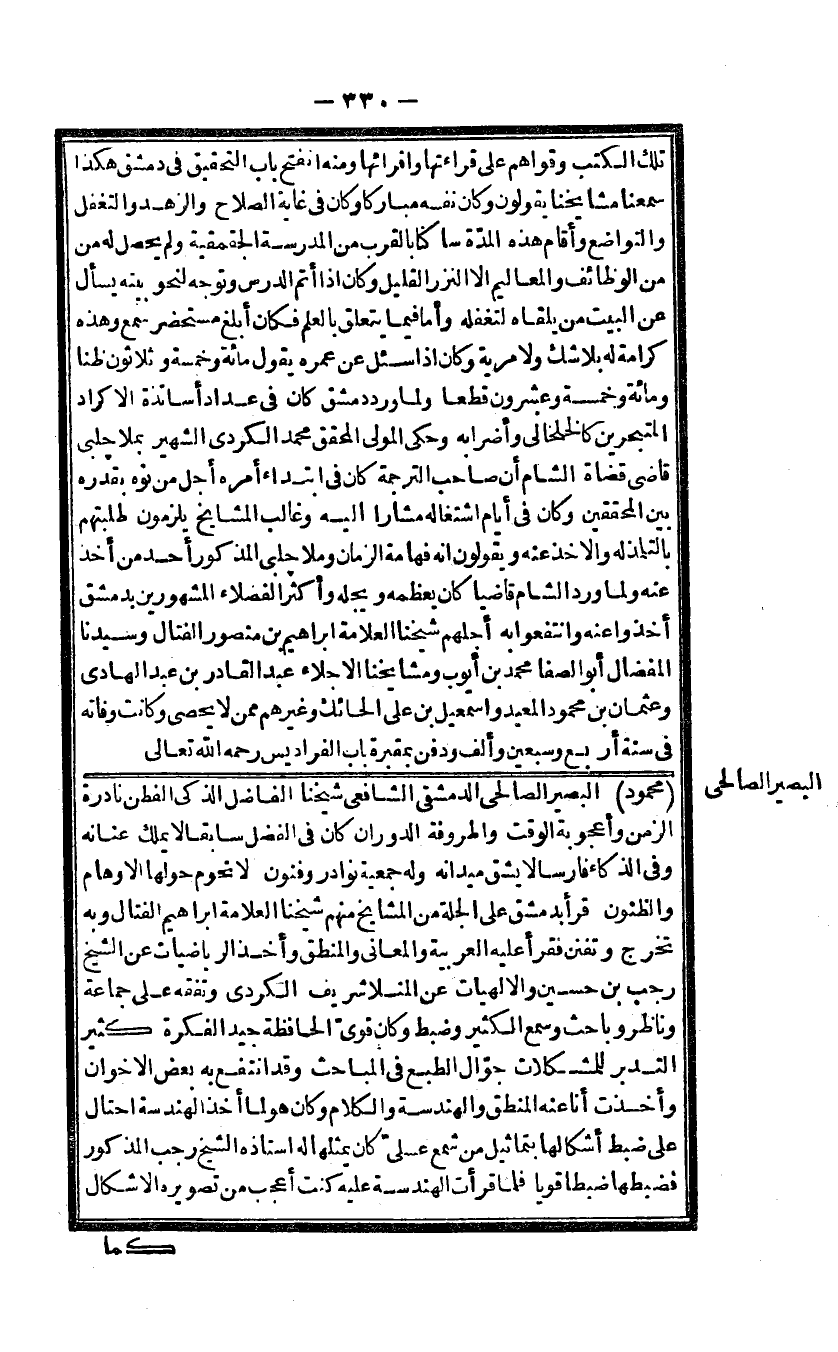 — ٣٣٠ —
تلك الكتب وقواهم على قراءتها واقرائها ومنه انفتح باب التحقيق فى دمشق هكذا
سمعنا مشايخنا يقولون وكان نفسه مباركا وكان فى غاية الصلاح والزهد والتغفل
والتواضع وأقام هذه المدّة ساكنا بالقرب من المدرسة الجقمقية ولم يحصل له من
من الوظائف والمعاليم الا النزر القليل وكان اذا أتم الدرس وتوجه لنحو بيته يسأل
عن البيت من يلقاه لتغفله وأما فيما يتعلق بالعلم فكان أبلغ مستحضر سمع وهذه
كرامة له بلا شك ولا مرية وكان اذا سئل عن عمره يقول مائة وخمسة وثلاثون ظنا
ومائة وخمسة وعشرون قطعا ولما ورد دمشق كان فى عداد أساتذة الاكراد
المتبحرين كالخلخالى وأضرابه وحكى المولى المحقق محمد الكردى الشهير بملا جلبى
قاضى قضاة الشام أن صاحب الترجمة كان فى ابتداء أمره أجل من نوّه بقدره
بين المحققين وكان فى أيام اشتغاله مشارا اليه وغالب المشايخ يلزمون طلبتهم
بالتلمذ له والاخذ عنه ويقولون انه فهامة الزمان وملا جلبى المذكور أحد من أخذ
عنه ولما ورد الشام قاضيا كان يعظمه ويجله وأكثر الفضلاء المشهورين بدمشق
أخذوا عنه وانتفعوا به أجلهم شيخنا العلامة ابراهيم بن منصور الفتال وسيدنا
المفضال أبو الصفا محمد بن أيوب ومشايخنا الاجلاء عبد القادر بن عبد الهادى
وعثمان بن محمود المعيد واسمعيل بن على الحائك وغيرهم ممن لا يحصى وكانت وفاته
فى سنة أربع وسبعين وألف ودفن بمقبرة باب الفراديس رحمه الله تعالى
البصير الصالحى
(محمود) البصير الصالحى الدمشقى الشافعى شيخنا الفاضل الذكى الفطن نادرة
الزمن وأعجوبة الوقت والطروفة الدوران كان فى الفضل سابقا لا يملك عنانه
وفى الذكاء فارسا لا يشق ميدانه وله جمعية نوادر وفنون لا تحوم حولها الاوهام
والظنون قرأ بدمشق على الجلة من المشايخ منهم شيخنا العلامة ابراهيم الفتال وبه
تخرج وتفنن فقرأ عليه العربية والمعانى والمنطق وأخذ الرياضيات عن الشيخ
رجب بن حسين والالهيات عن المنلا شريف الكردى وتفقه على جماعة
وناظر وباحث وسمع الكثير وضبط وكان قوىّ الحافظة جيد الفكرة كثير
التدبر للمشكلات جوّال الطبع فى المباحث وقد انتفع به بعض الاخوان
وأخذت أنا عنه المنطق والهندسة والكلام وكان هو لما أخذ الهندسة احتال
على ضبط أشكالها بتماثيل من شمع عسلىّ كان يمثلها له استاذه الشيخ رجب المذكور
فضبطها ضبطا قويا فلما قرأت الهندسة عليه كنت أعجب من تصويره الاشكال
كما